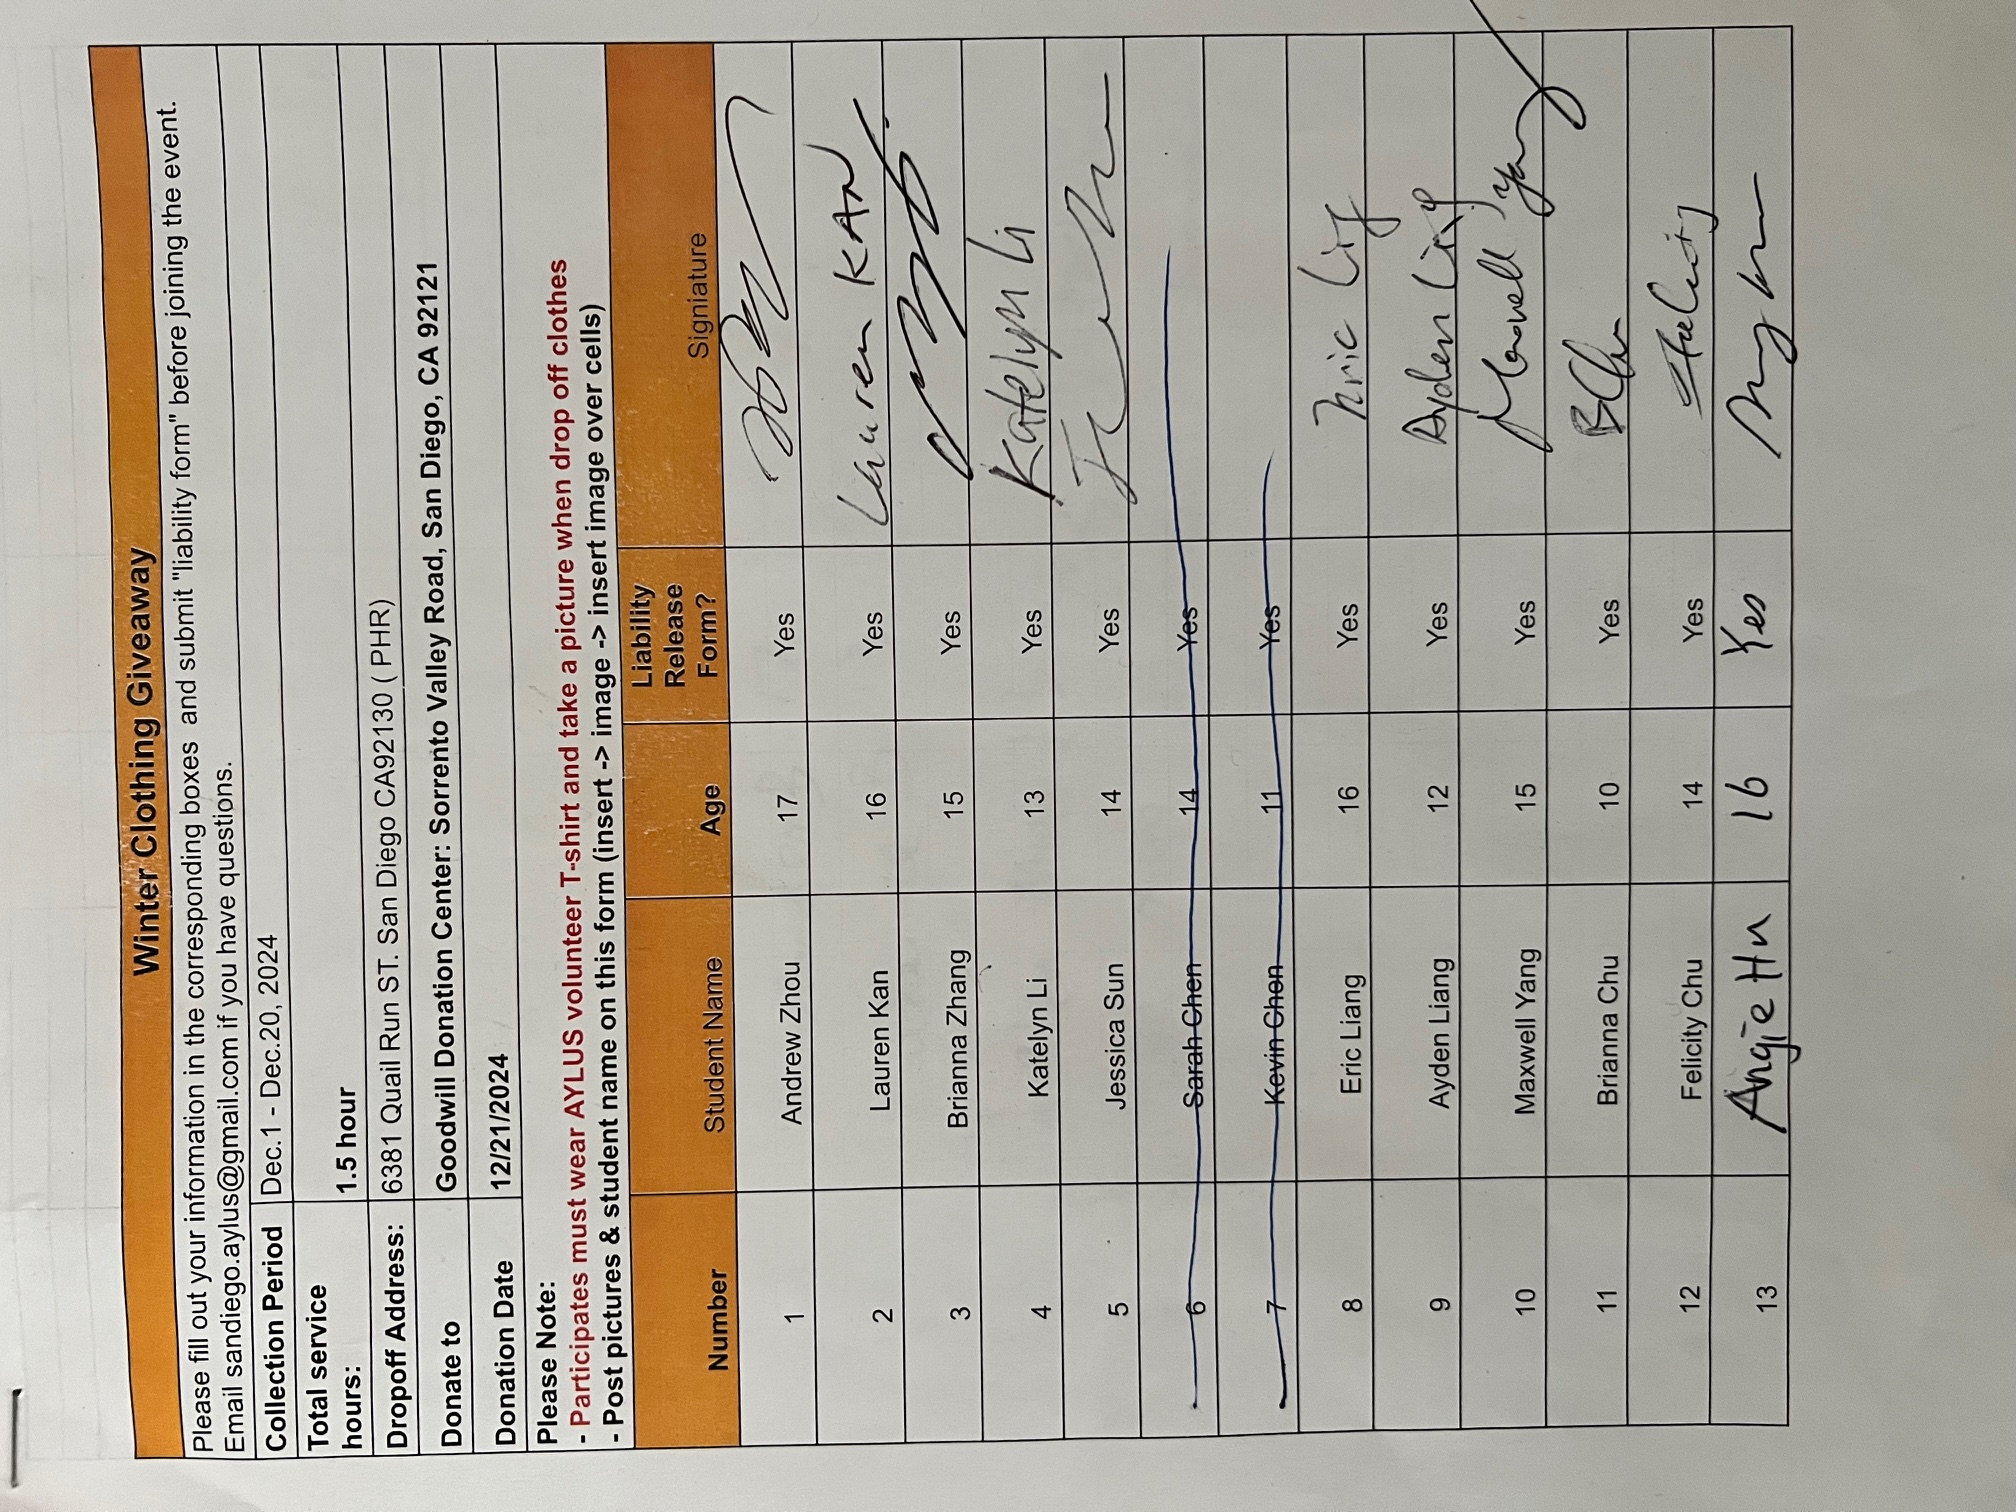 Winter Clothing Giveaway
Please fill out your information in the corresponding boxes and submit "liability form" before joining the event.
Email sandiego.aylus@gmail.com if you have questions.
Collection Period Dec.1 - Dec.20, 2024
Total service hours: 1.5 hour
Dropoff Address: 6381 Quail Run ST. San Diego CA92130 ( PHR)
Donate to Goodwill Donation Center: Sorrento Valley Road, San Diego, CA 92121
Donation Date 12/21/2024
Please Note:
- Participates must wear AYLUS volunteer T-shirt and take a picture when drop off clothes
- Post pictures & student name on this form (insert -> image -> insert image over cells)
Number Student Name Age Liability Release Form? Signiature
1 Andrew Zhou 17 Yes
2 Lauren Kan 16 Yes Lauren KAN
3 Brianna Zhang 15 Yes
4 Katelyn Li 13 Yes Katelyn Li
5 Jessica Sun 14 Yes
6 Sarah Chen 14 Yes
7 Kevin Chen 11 Yes
8 Eric Liang 16 Yes
9 Ayden Liang 12 Yes Ayden
10 Maxwell Yang 15 Yes Maxwell Yang
11 Brianna Chu 10 Yes BChu
12 Felicity Chu 14 Yes Felicity
13 Angie Hu 16 Yes